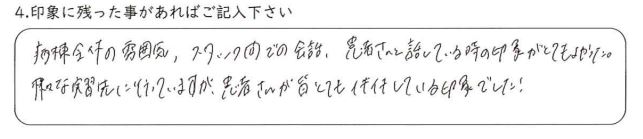 4.印象に残った事があればご記入下さい
病棟全体の雰囲気，スタッフ間での会話，患者さんと話している時の印象がとてもよかった。
様々な実習先に行っていますが，患者さんが皆とても活き活きしている印象でした！